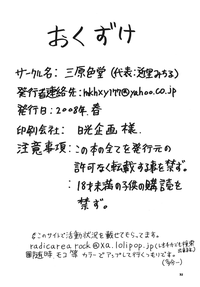 おくずけ
サークル名: 三原色堂 (代表:近里みちる)
発行者連絡先: hkhxy177@yahoo.co.jp
発行日: 2008年 春
印刷会社: 日光企画 様
注意事項: この本の全てを発行元の
許可なく転載する事を禁ず。
: 18才未満の子供の購読を
禁ず。
このサイトで活動状況を載せてもらってます。
radicarea rock@xa.lolipop.jp
カラーでアップして行くつもりです。